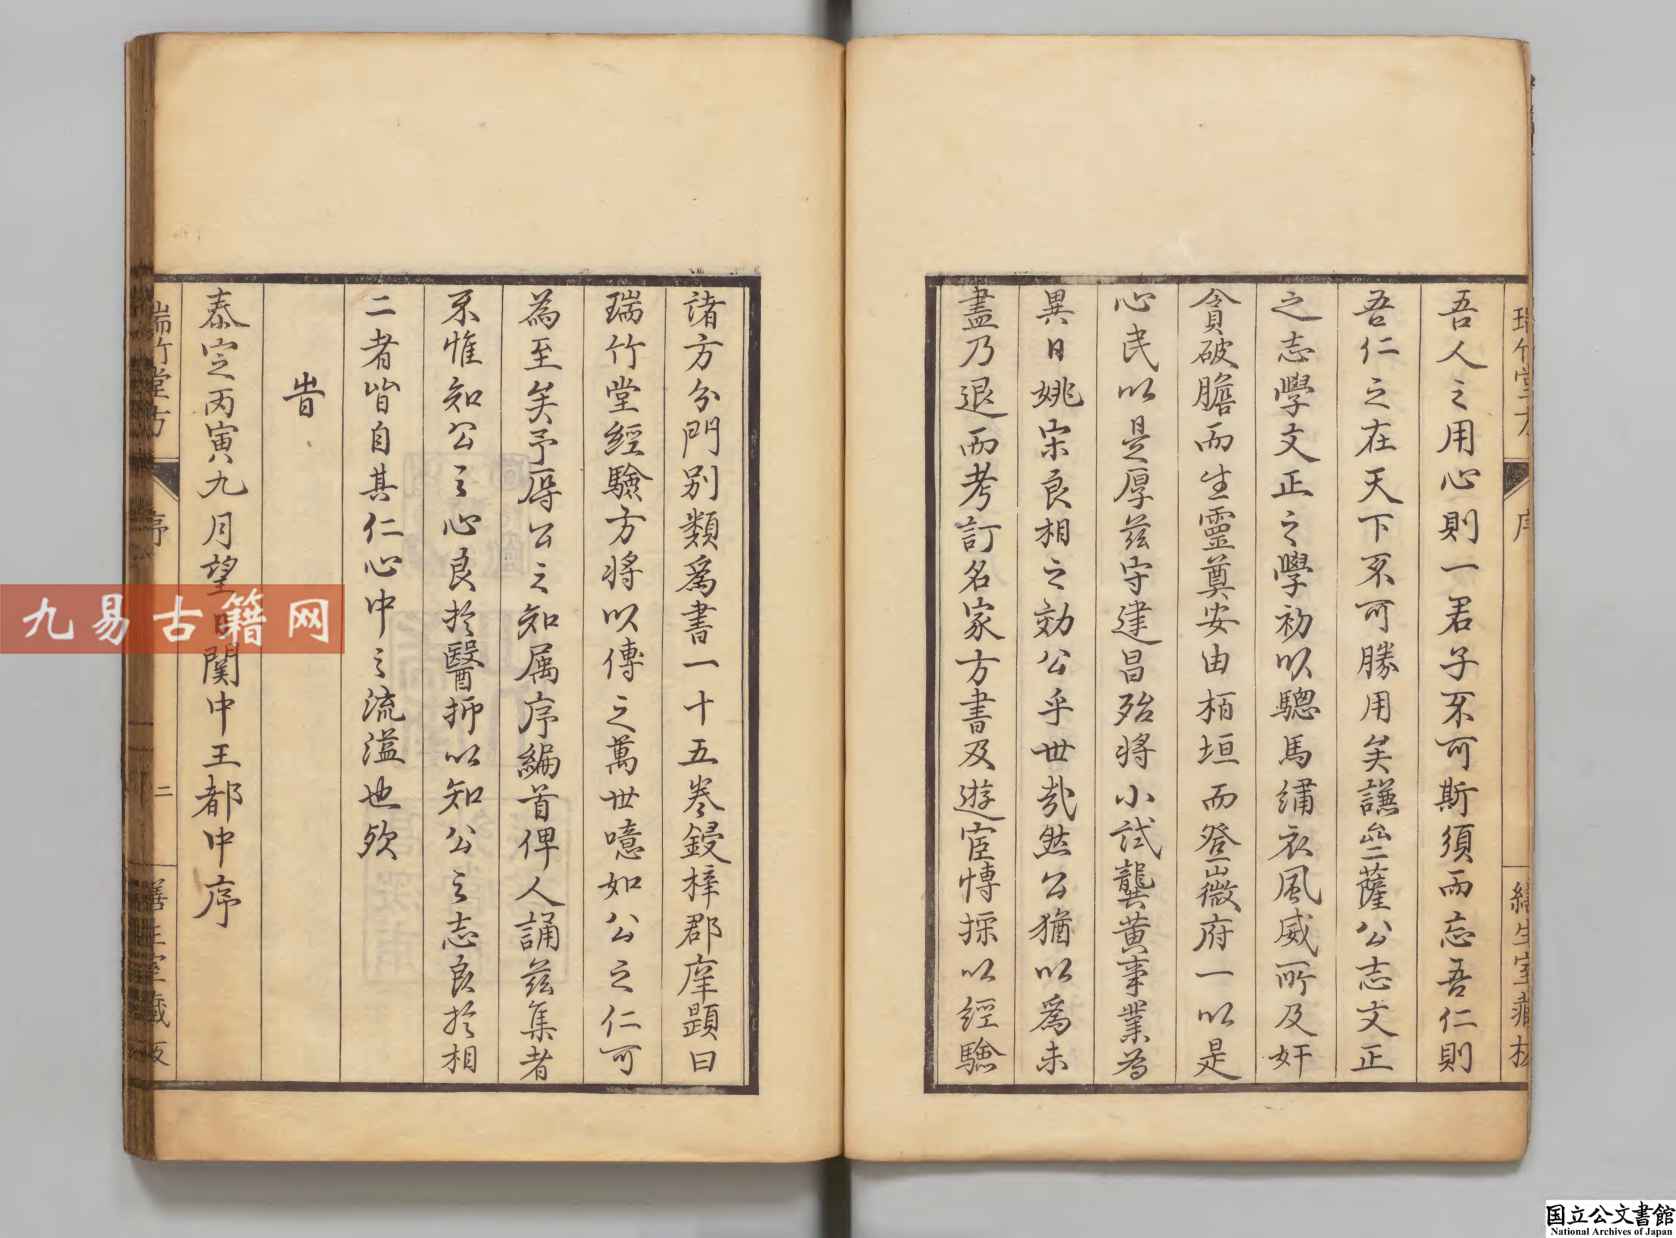 吾人之用心則一君子不可斯須而忘吾仁則
吾仁之在天下不可勝用矣謙齋薩公志文正
之志學文正之學初以驄馬繡衣風威所及奸
貪破膽而生靈奠安由栢垣而登薇府一以是
心民以是厚茲守建昌殆將小試龔黃事業爲
異日姚宋良相之効公乎世哉然公猶以爲未
盡乃退而考訂名家方書及遊宦慱採以經驗
諸方分門別類爲書一十五卷鋟梓郡庠題曰
瑞竹堂經驗方將以傳之萬世噫如公之仁可
為至矣予辱公之知属序編首俾人誦茲集者
不惟知公之心良於醫抑以知公之志良於相
二者皆自其仁心中之流溢也歟
旹
泰定丙寅九月望日關中王都中序
瑞竹堂方 序 二
九易古籍网
国立公文書館
National Archives of Japan